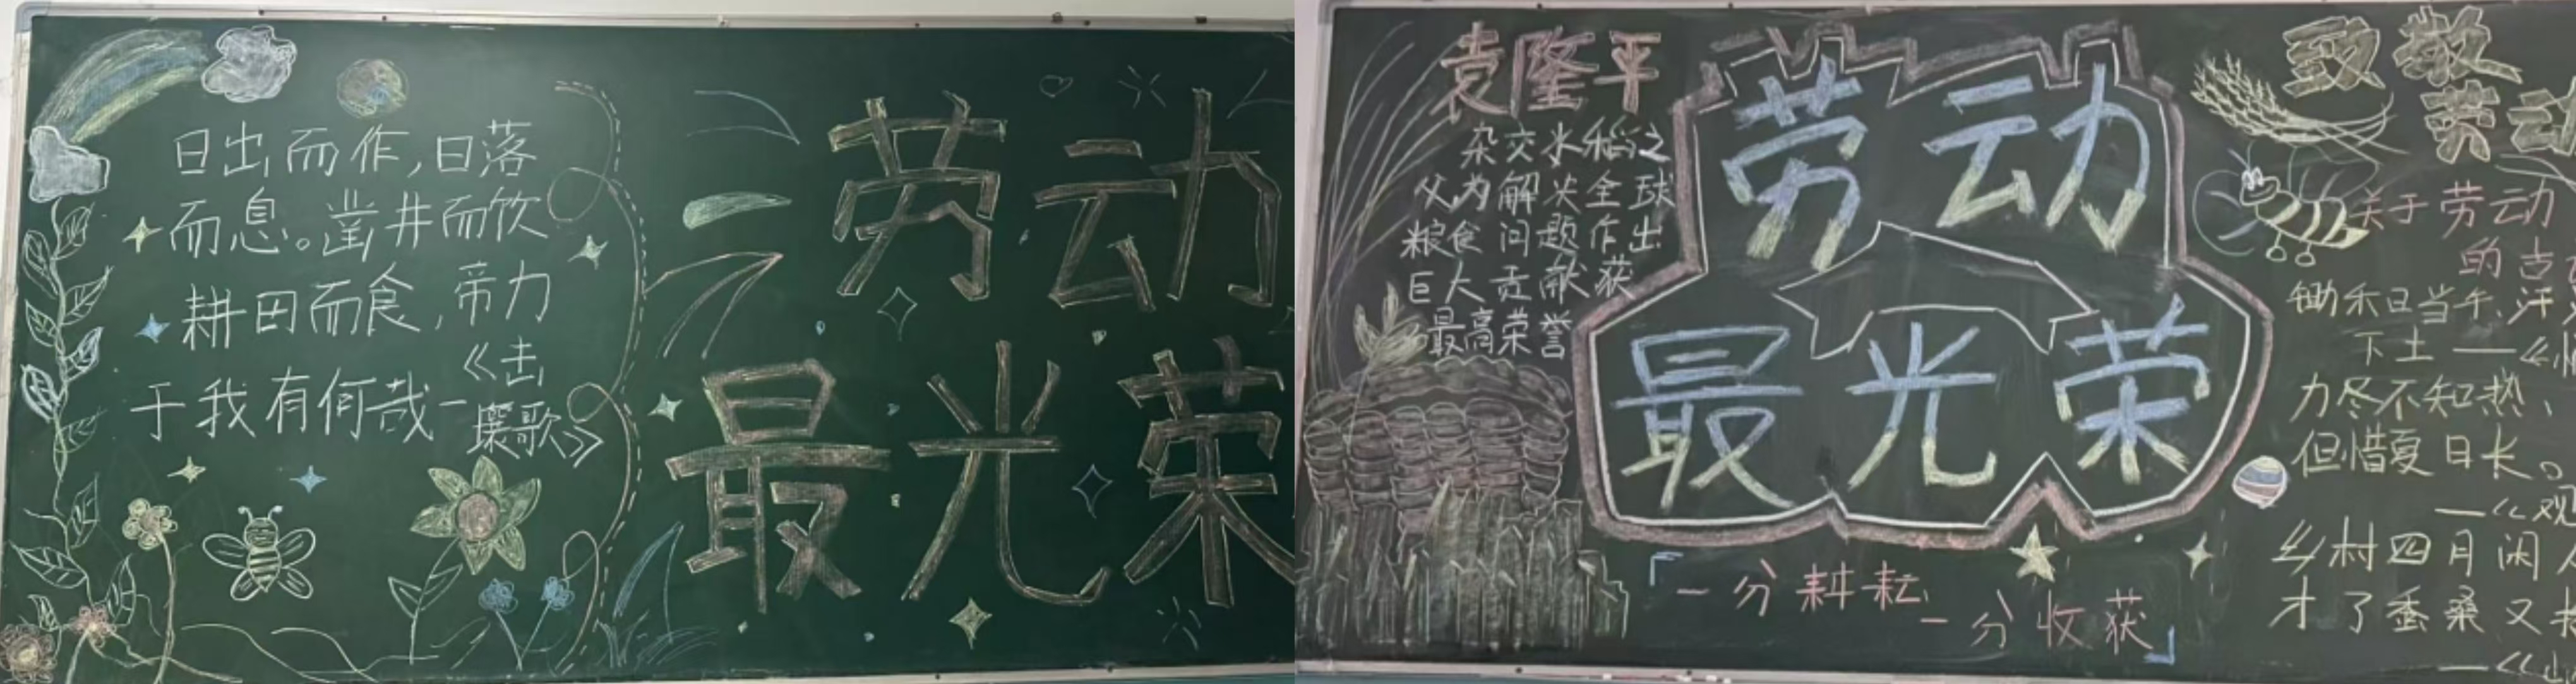 日出而作,日落
而息。凿井而饮
耕田而食,帝力
于我有何哉—《击
壤歌》
劳动
最光荣
袁隆平
杂交水稻之
父为解决全球
粮食问题作出
巨大贡献获
最高荣誉
劳动
最光荣
「一分耕耘,
一分收获」
致敬
劳动
关于劳动
的古
锄禾日当午,汗
下土——《悯
力尽不知热,
但惜夏日长。
——《观
乡村四月闲人
才了蚕桑又
——《